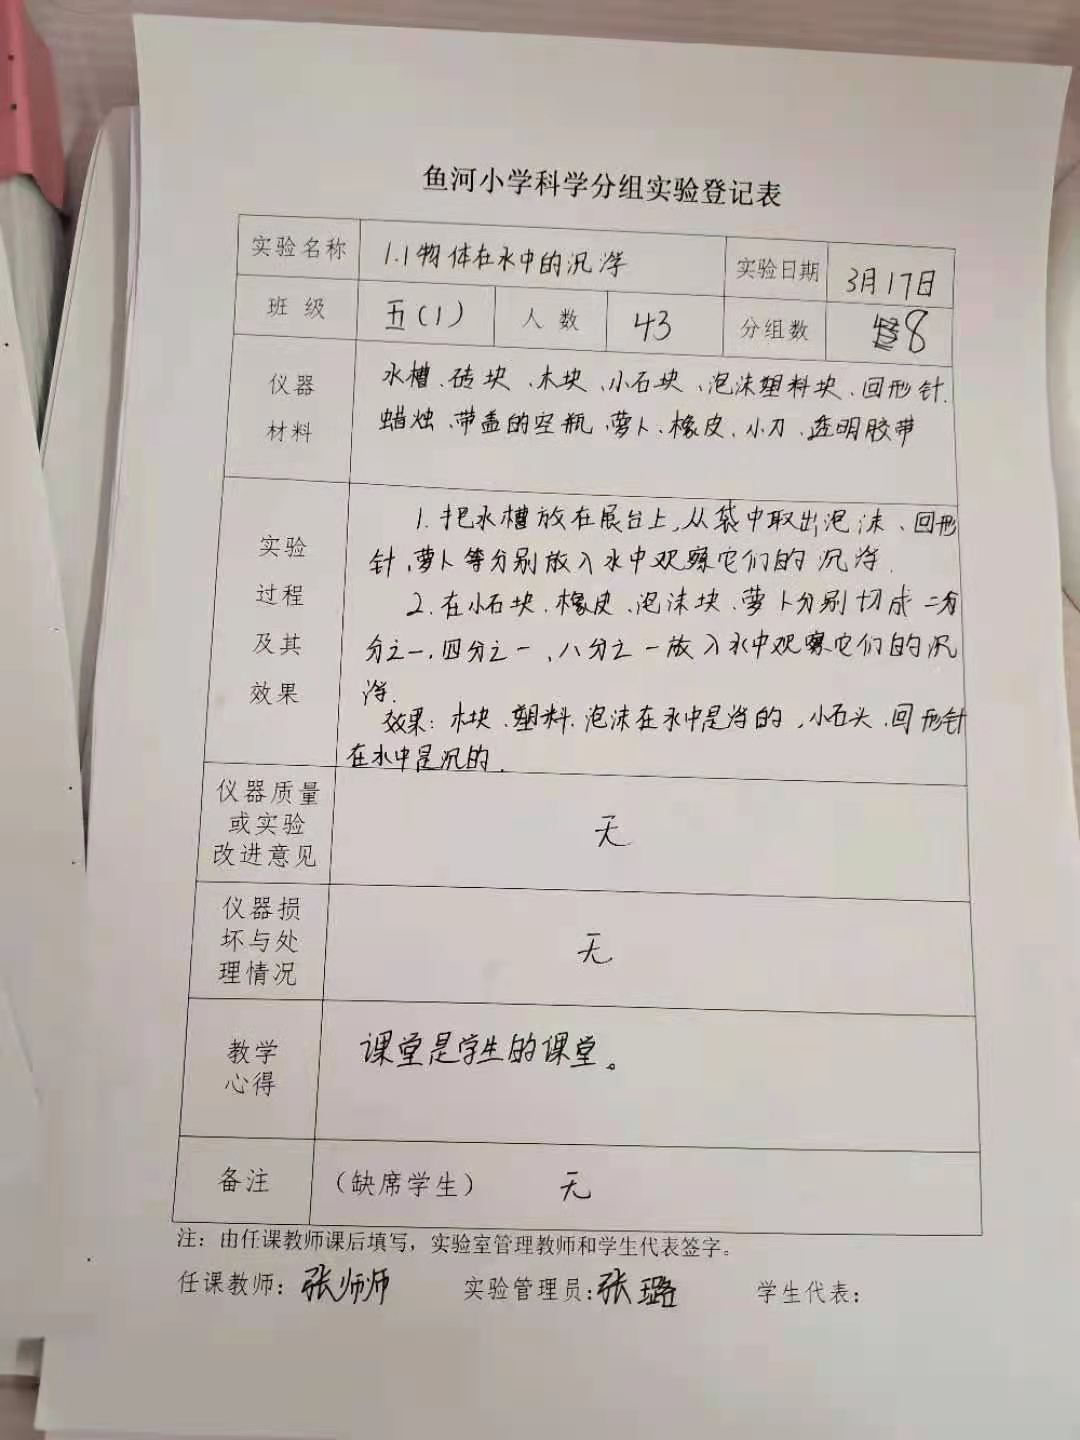 鱼河小学科学分组实验登记表
实验名称 1.1物体在水中的沉浮 实验日期 3月17日
班 级 五(1) 人 数 43 分组数 8
仪器
材料
水槽、砖块、木块、小石块、泡沫塑料块、回形针、
蜡烛、带盖的空瓶、萝卜、橡皮、小刀、透明胶带
实验
过程
及其
效果
1.把水槽放在展台上,从袋中取出泡沫、回形
针、萝卜等分别放入水中观察它们的沉浮.
2.在小石块、橡皮、泡沫块、萝卜分别切成二分
分之一、四分之一、八分之一放入水中观察它们的沉
浮.
效果:木块、塑料、泡沫在水中是浮的,小石头、回形针
在水中是沉的.
仪器质量
或实验
改进意见
无
仪器损
坏与处
理情况
无
教学
心得
课堂是学生的课堂。
备注 （缺席学生） 无
注：由任课教师课后填写，实验室管理教师和学生代表签字。
任课教师：张师师 实验管理员:张璐 学生代表：